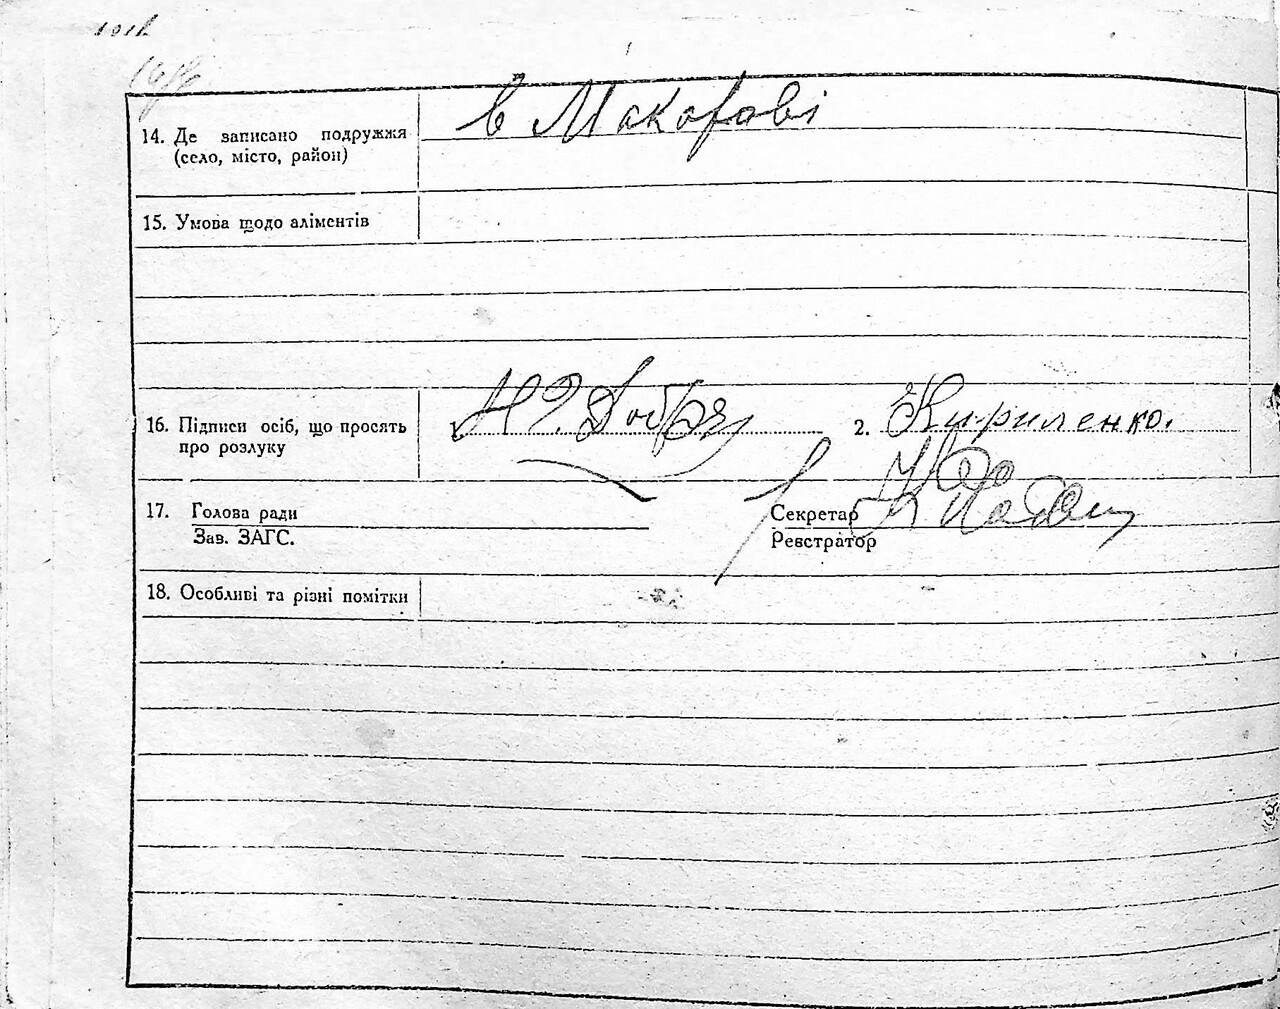 14. Де записано подружжя
(село, місто, район)
в Макарові
15. Умова щодо аліментів
16. Підписи осіб, що просять
про розлуку
2. Кириленко.
17. Голова ради
Зав. ЗАГС.
Секретар
Реєстратор
18. Особливі та різні помітки